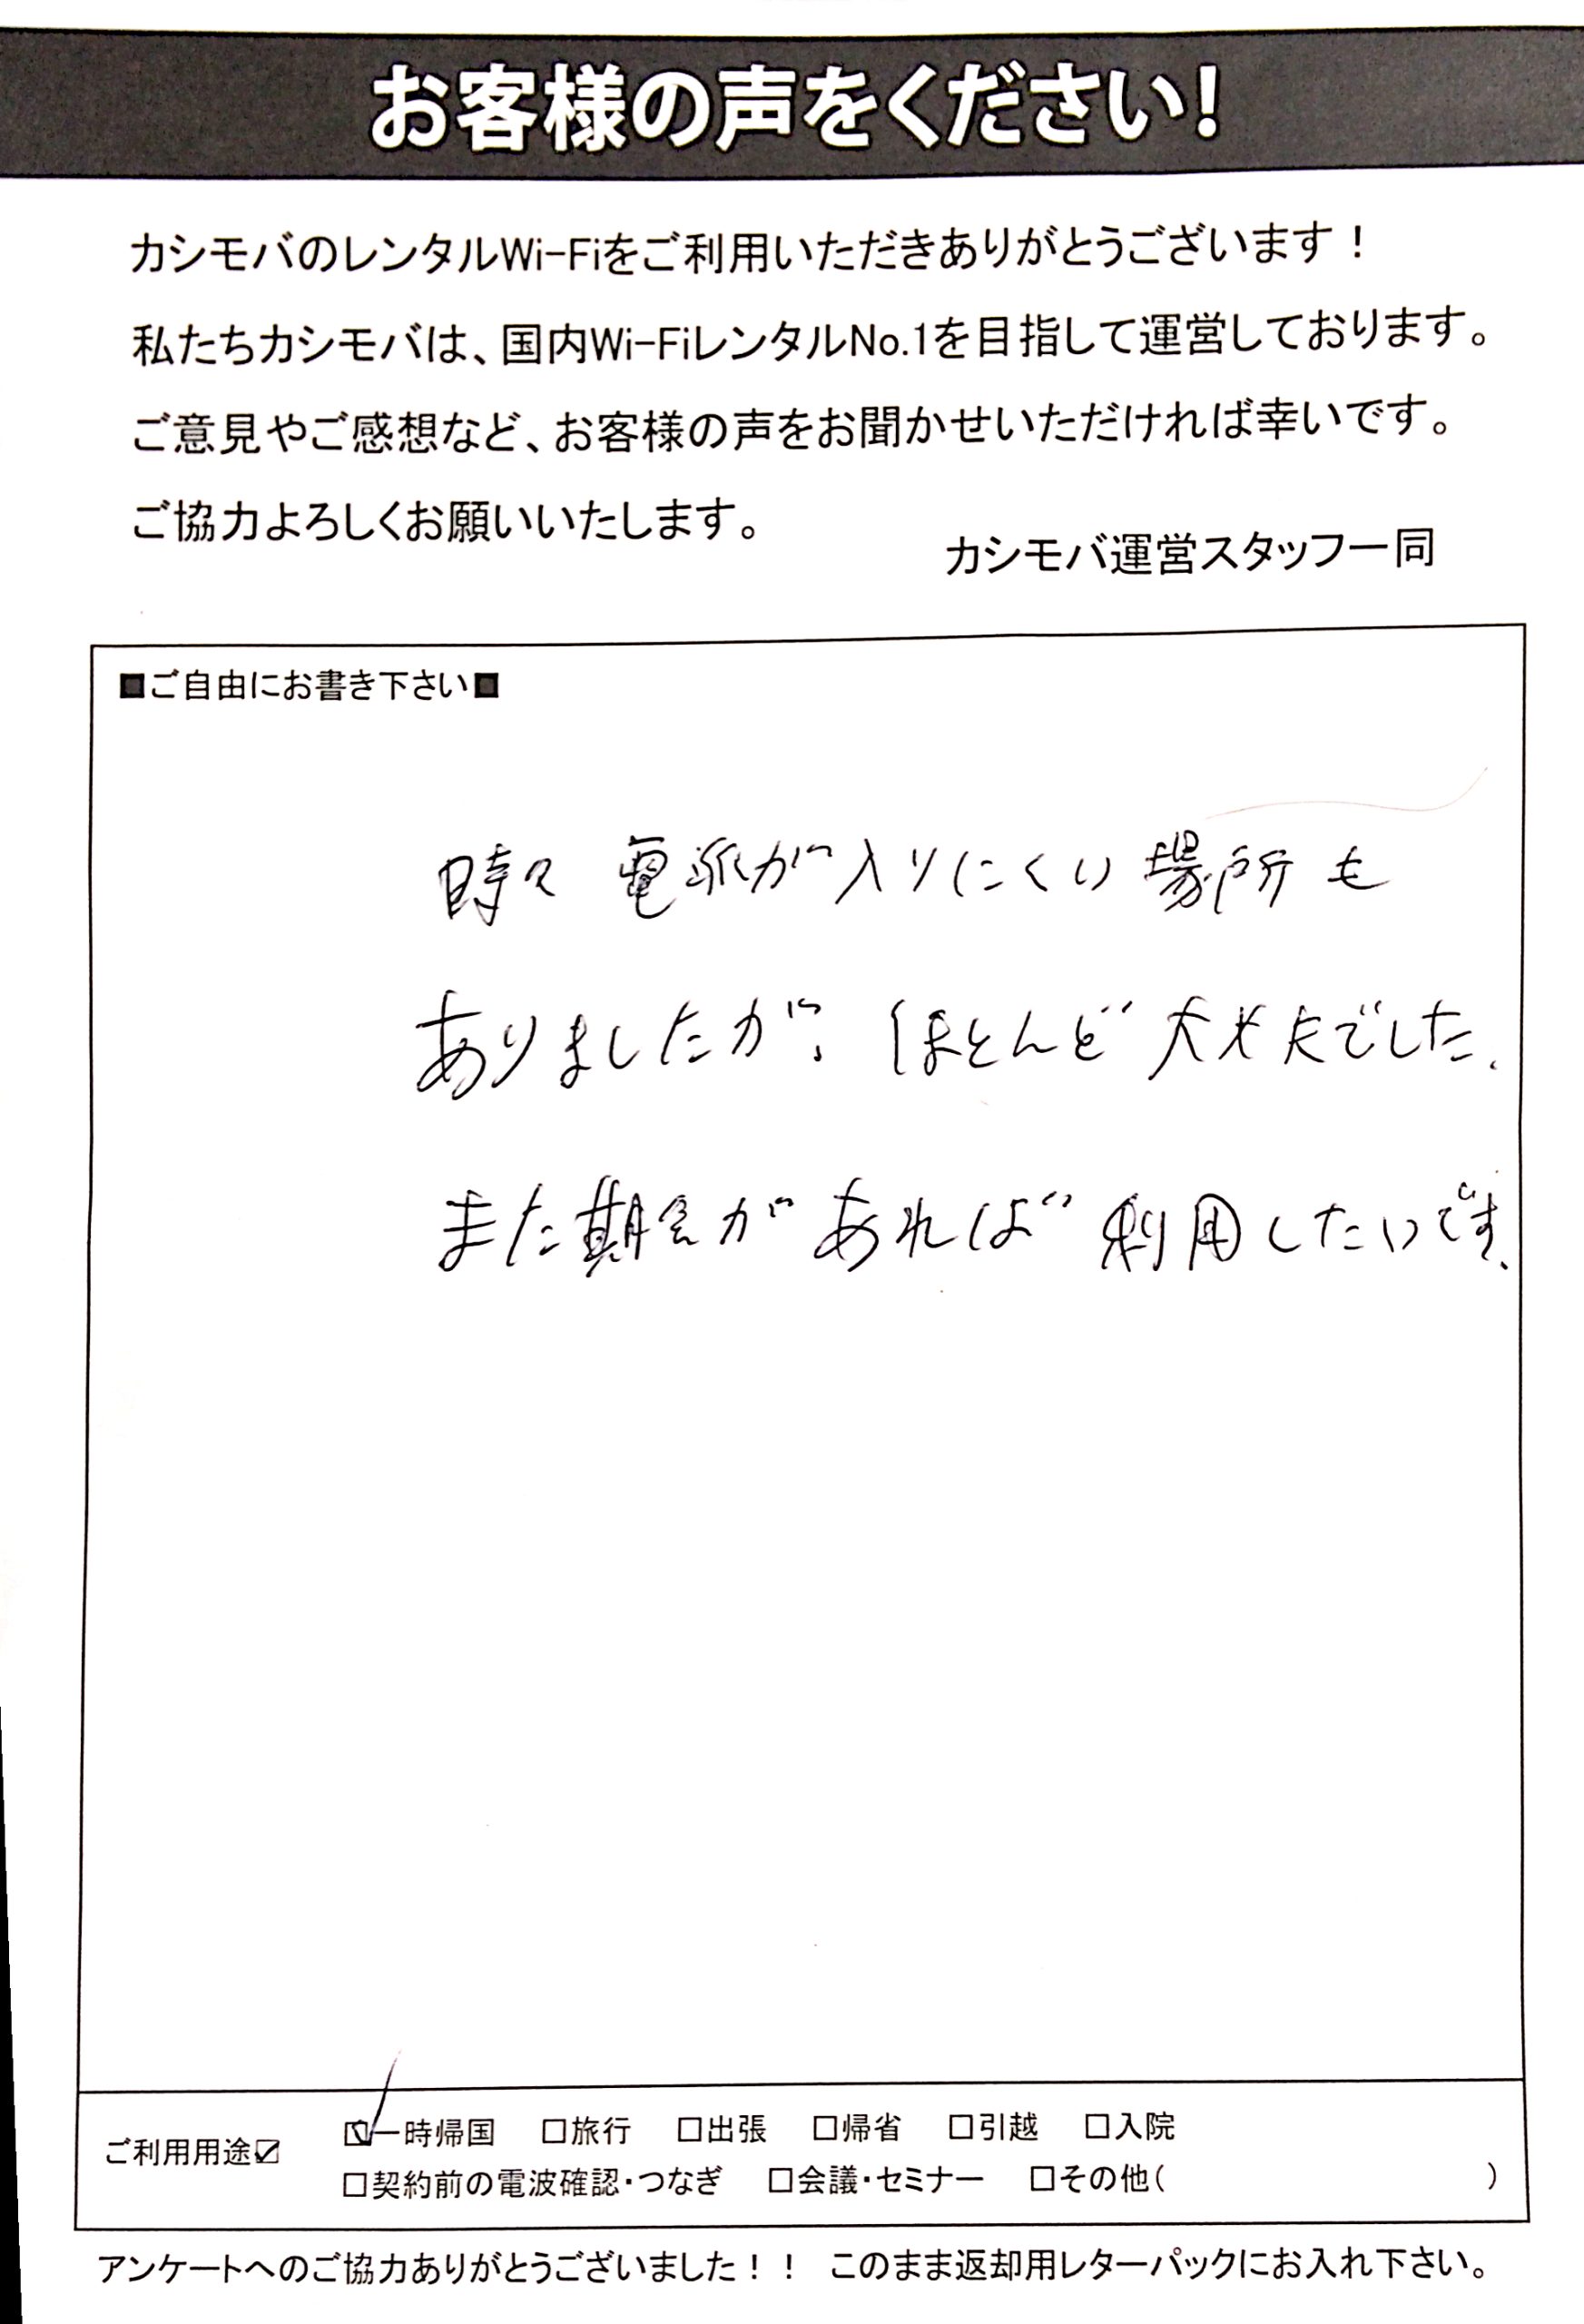 お客様の声をください!
カシモバのレンタルWi-Fiをご利用いただきありがとうございます！
私たちカシモバは、国内Wi-FiレンタルNo.1を目指して運営しております。
ご意見やご感想など、お客様の声をお聞かせいただければ幸いです。
ご協力よろしくお願いいたします。
カシモバ運営スタッフ一同
■ご自由にお書き下さい■
時々 電派が入りにくい場所も
ありましたが、ほとんど大丈夫でした.
また期会があれば利用したいです.
ご利用用途☑ ☑一時帰国 □旅行 □出張 □帰省 □引越 □入院
□契約前の電波確認・つなぎ □会議・セミナー □その他( )
アンケートへのご協力ありがとうございました！！ このまま返却用レターパックにお入れ下さい。